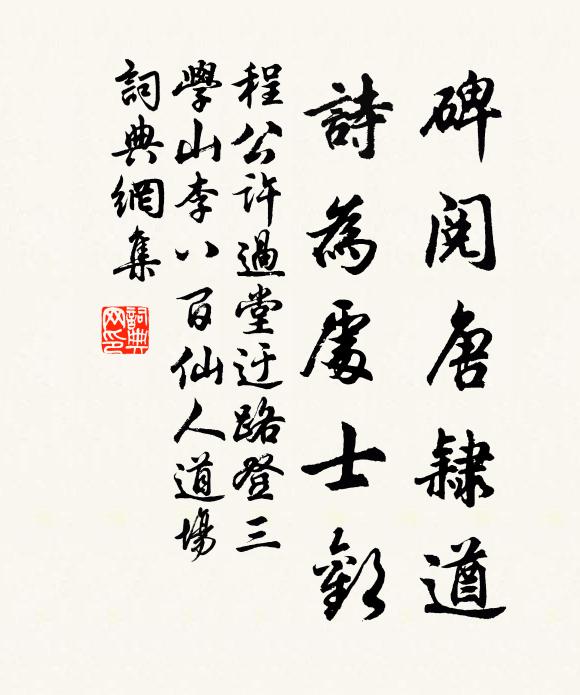 碑閱唐隸遒
詩為處士歡
程公許過堂迂路登三
學山李八百仙人道場
詞典網集
詞典網印